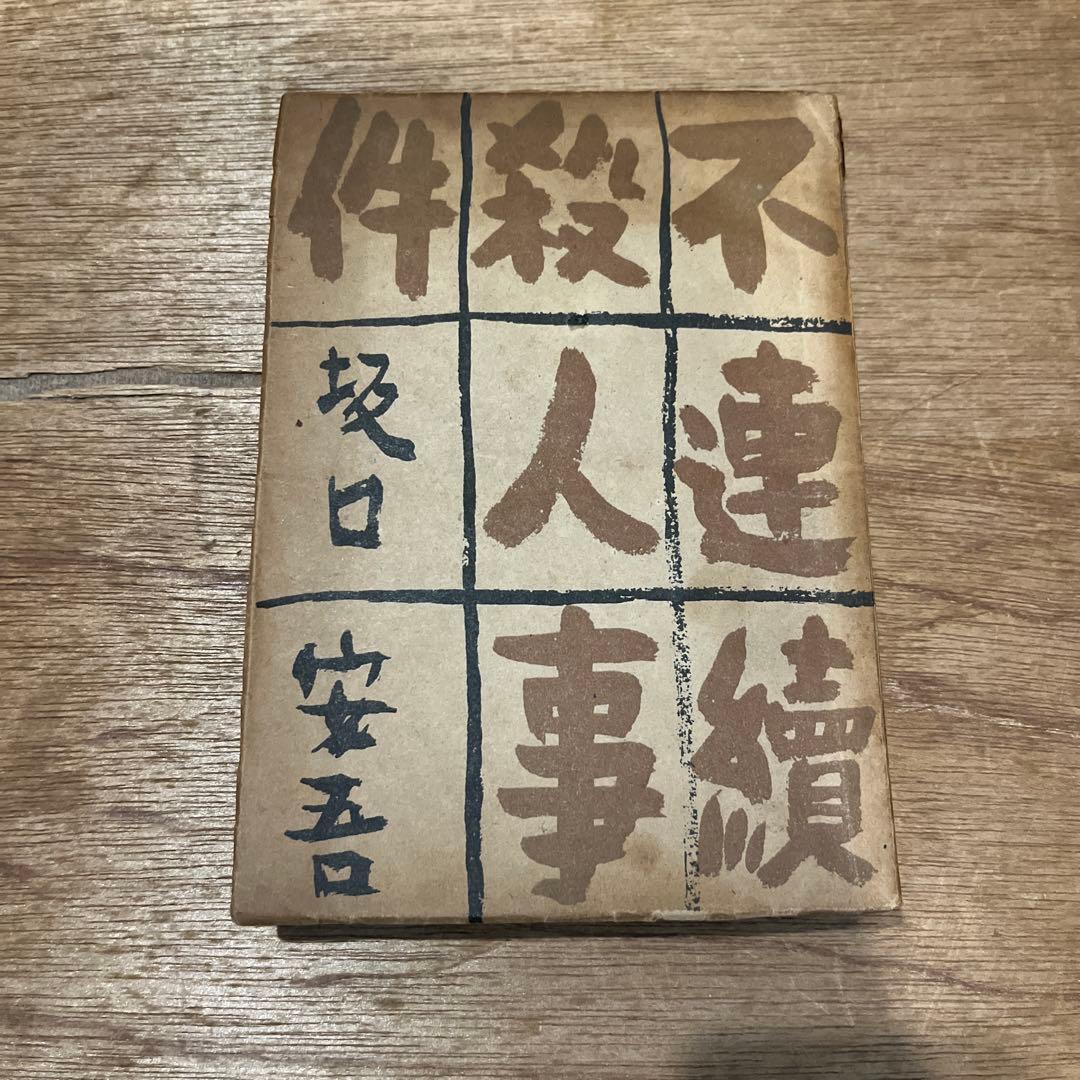 不連續
殺人事
件
坂口
安吾